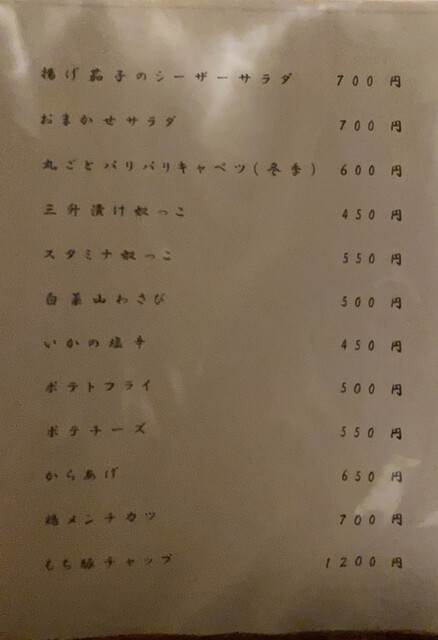 揚げ茄子のシーザーサラダ 700円
おまかせサラダ 700円
丸ごとパリパリキャベツ(冬季) 600円
三升漬け奴っこ 450円
スタミナ奴っこ 550円
白菜山わさび 500円
いかの塩辛 450円
ポテトフライ 500円
ポテチーズ 550円
からあげ 650円
鶏メンチカツ 700円
もち豚チャップ 1200円